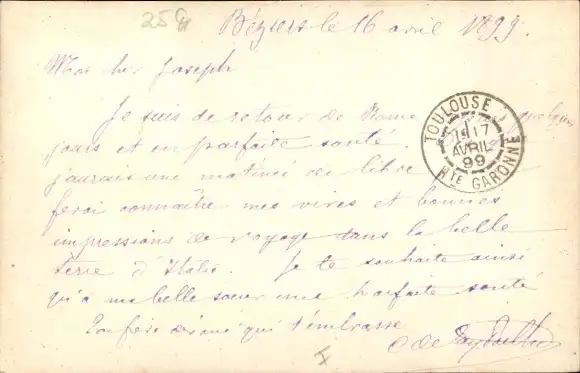 25
Béziers le 16 avril 1899.
Mon cher Joseph
Je suis de retour de Rome depuis quelques
jours et en parfaite santé.
j'aurais une matinée de libre
ferai connaître mes vives et bonnes
impressions de voyage dans la belle
terre d'Italie. Je te souhaite ainsi
qu'a ma belle sœur une parfaite santé
Ton frère dévoué qui t'embrasse
TOULOUSE
17
AVRIL
99
HTE GARONNE